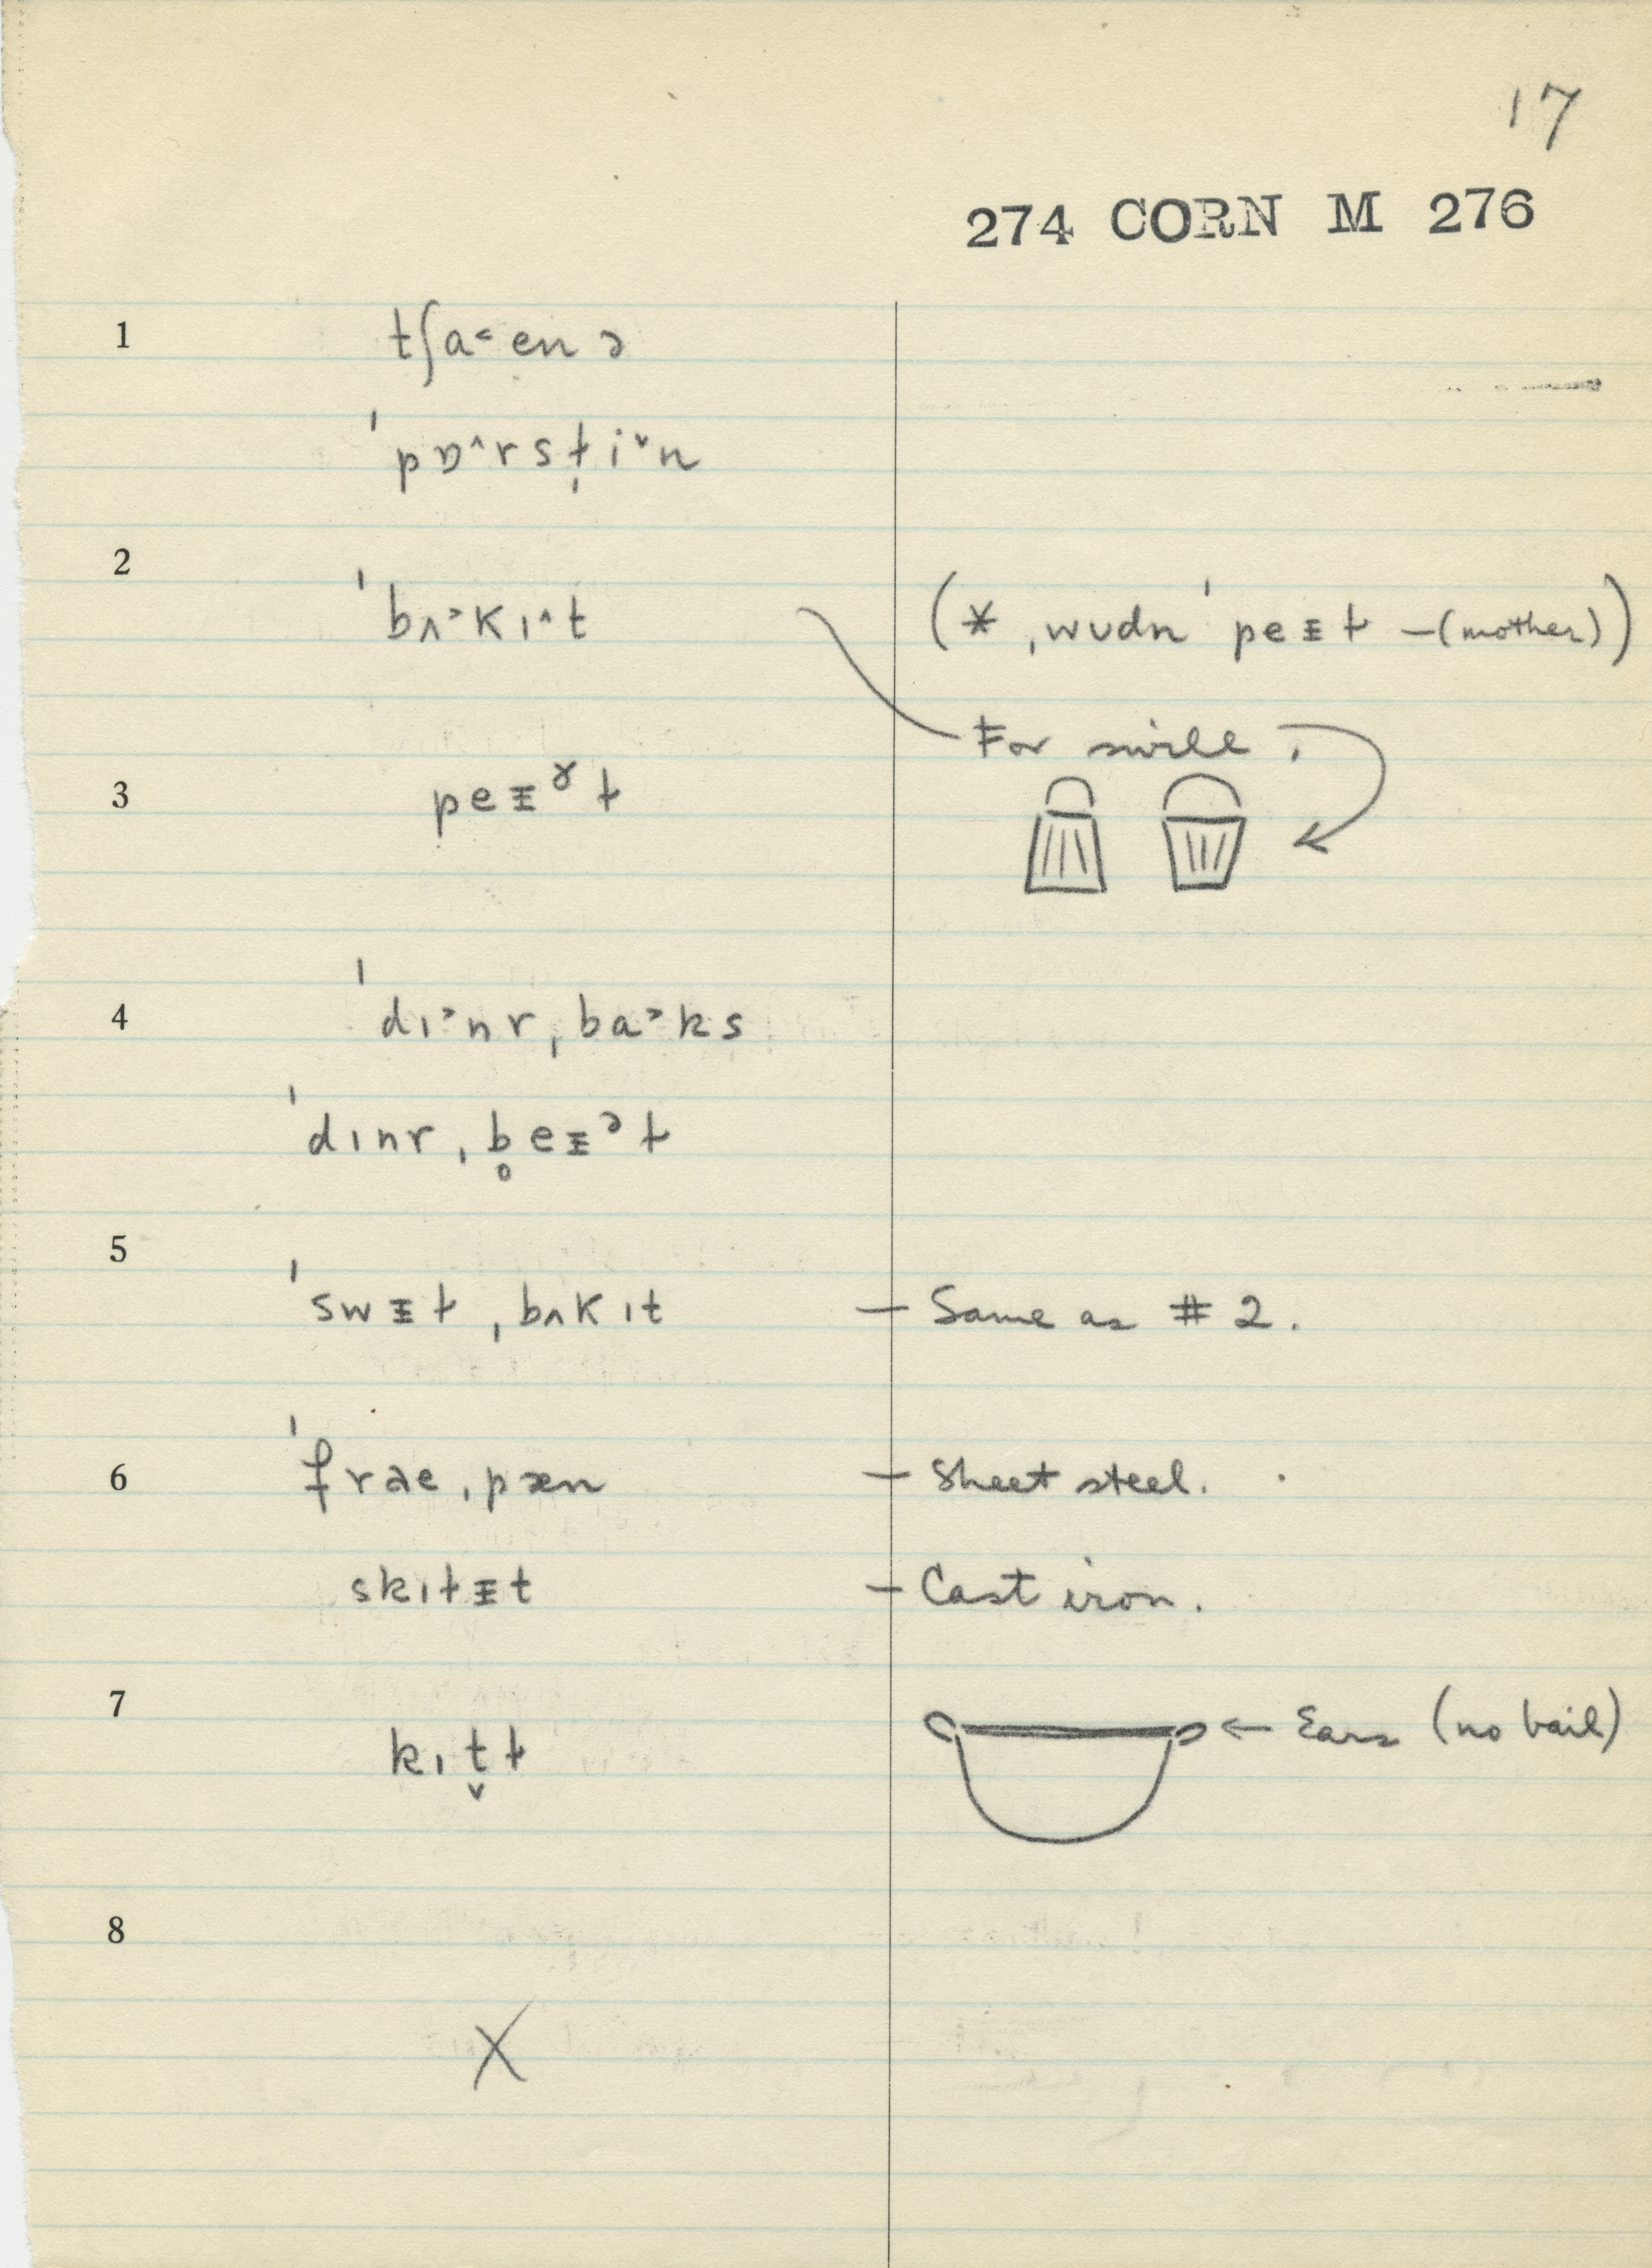 17
274 CORN M 276
1 tʃa˂enə
ˈpɒ˄rst̩i˅n
2 ˈbʌ˃kɪ˄t (* ˌwʊdn ˈpeɪɫ —(mother))
For swill.
3 peᵻˠɫ
4 ˈdɪ˃nrˌba˃ks
ˈdɪnrˌb̥eᵻᵊɫ
5 ˈswᵻɫˌbʌkɪt — Same as # 2.
6 ˈfraeˌpæn — Sheet steel.
skɪɫᵻt — Cast iron.
7 kɪt̬ɫ ← Ears (no bail)
8
X